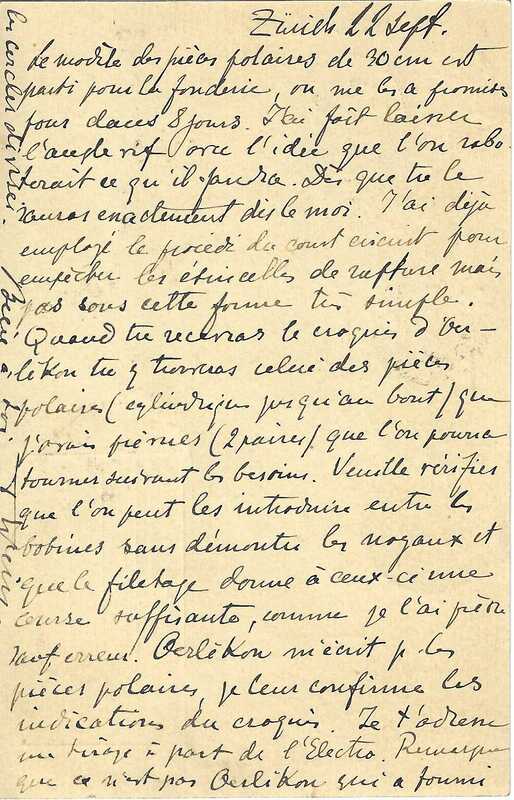 Zürich 22 Sept.
Le modèle des pièces polaires de 30 cm est
parti pour la fonderie, on me les a promises
pour dans 8 jours. J'ai fait laisser
l'angle vif avec l'idée que l'on rabo-
terait ce qu'il faudra. Dès que tu le
sauras exactement dis le moi. J'ai déjà
employé le procédé du court circuit pour
empêcher les étincelles de rupture mais
pas sous cette forme très simple.
Quand tu recevras le croquis d'Oer-
likon tu y trouveras celui des pièces
polaires (cylindriques jusqu'au bout) que
j'avais prévues (2 paires) que l'on pourra
tourner suivant les besoins. Veuille vérifier
que l'on peut les introduire entre les
bobines sans démonter les noyaux et
que le filetage donne à ceux-ci une
course suffisante, comme je l'ai prévu
sauf erreur. Oerlikon m'écrit p. les
pièces polaires, je leur confirme les
indications du croquis. Je t'adresse
un tirage à part de l'Electro. Remarque
que ce n'est pas Oerlikon qui a fourni
les cercles divisés. Bien à toi